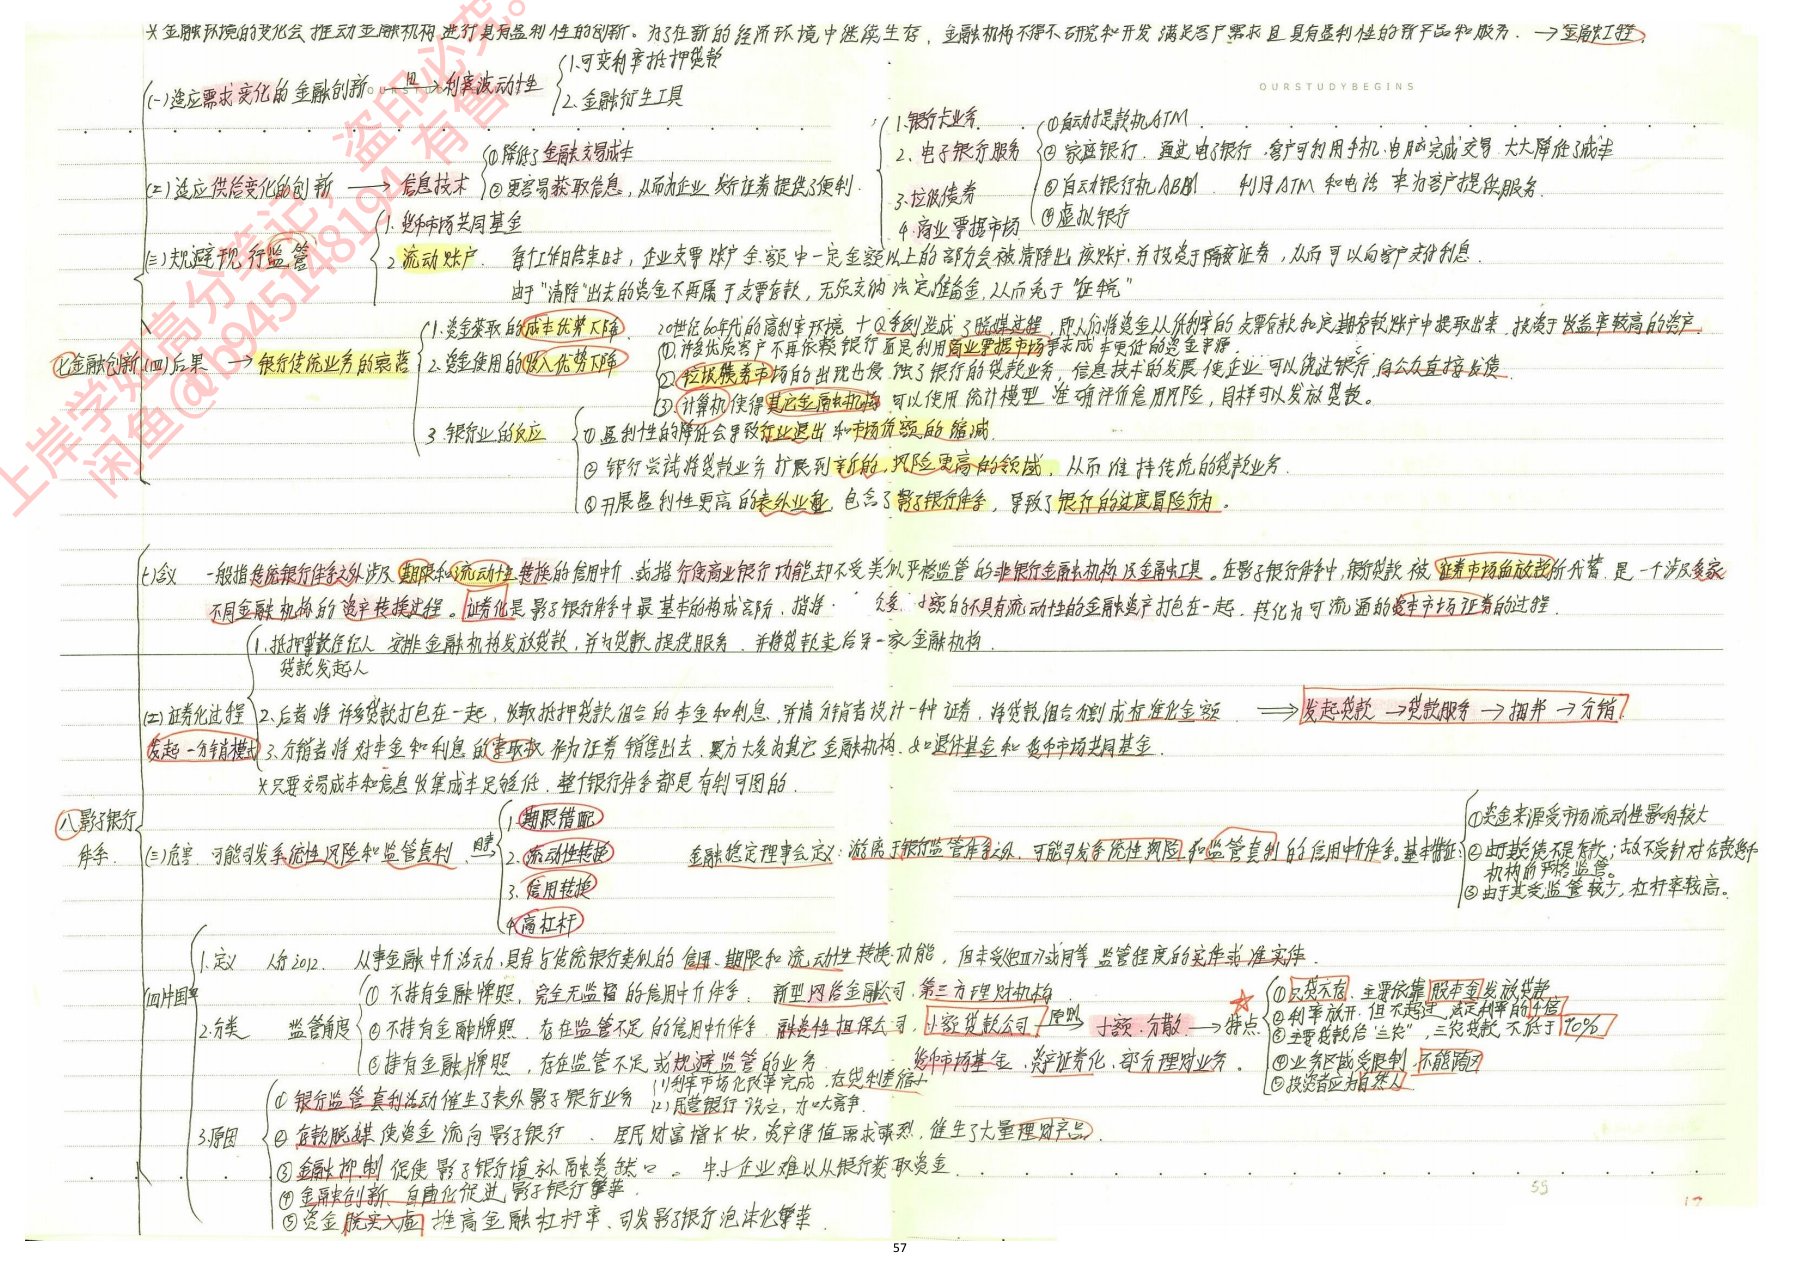 * 金融环境的变化会推动金融机构进行具有盈利性的创新。为了在新的经济环境中继续生存，金融机构不得不研究和开发满足客户需求且具有盈利性的新产品和服务. → 金融工程.
OURSTUDYBEGINS
(一) 适应需求变化的金融创新 → 利率波动性
1. 可变利率抵押贷款
2. 金融衍生工具
(二) 适应供给变化的创新 → 信息技术
① 降低了金融交易成本
② 更容易获取信息，从而为企业发行证券提供了便利.
1. 银行卡业务
2. 电子银行服务
3. 垃圾债券
4. 商业票据市场
① 自动提款机ATM
② 家庭银行. 通过电子银行，客户可利用手机、电脑完成交易. 大大降低了成本
③ 自动银行机ABM 利用ATM和电话来为客户提供服务.
④ 虚拟银行
(三) 规避现行监管
1. 货币市场共同基金
2 流动账户. 每个工作日结束时，企业支票账户余额中一定金额以上的部分会被清除出该账户，并投资于隔夜证券，从而可以向客户支付利息.
由于“清除”出去的资金不再属于支票存款，无须交纳法定准备金，从而免于“征税”
七金融创新
(四) 后果 → 银行传统业务的衰落
1. 资金获取的成本优势下降 20世纪60年代的高利率环境+Q条例造成了脱媒过程，即人们将资金从低利率的支票存款和定期存款账户中提取出来，投资于收益率较高的资产.
2. 资金使用的收入优势下降
① 许多优质客户不再依赖银行而是利用商业票据市场寻求成本更低的资金来源
② 垃圾债券市场的出现也侵蚀了银行的贷款业务，信息技术的发展使企业可以绕过银行，向公众直接发债.
③ 计算机使得其它金融机构可以使用统计模型准确评价信用风险，同样可以发放贷款。
3. 银行业的反应
① 盈利性的降低会导致行业退出和市场份额的缩减.
② 银行尝试将贷款业务扩展到新的、风险更高的领域，从而维持传统的贷款业务.
③ 开展盈利性更高的表外业务，包含了影子银行体系，导致了银行的过度冒险行为。
八影子银行体系.
(一) 含义 一般指传统银行体系之外涉及期限和流动性转换的信用中介、或指行使商业银行功能却不受类似严格监管的非银行金融机构及金融工具。在影子银行体系中，银行贷款被证券市场的放款所代替，是一个涉及多家
不同金融机构的资产转换过程。证券化是影子银行体系中最基本的构成部分，指将众多、小额的不具有流动性的金融资产打包在一起，转化为可流通的资本市场证券的过程.
(二) 证券化过程
发起-分销模式
1. 抵押贷款经纪人 安排金融机构发放贷款，并为贷款提供服务，并将贷款卖给另一家金融机构.
贷款发起人
2. 后者将许多贷款打包在一起，收取抵押贷款组合的本金和利息，并请分销者设计一种证券，将贷款组合分割成标准化金额 ⟹ 发起贷款 → 贷款服务 → 捆绑 → 分销
3. 分销者将对本金和利息的索取权作为证券销售出去，买方大多为其它金融机构，如退休基金和货币市场共同基金.
* 只要交易成本和信息收集成本足够低，整个银行体系都是有利可图的.
(三) 危害 可能引发系统性风险和监管套利
1 期限错配
2. 流动性转换
3. 信用转换
4 高杠杆
金融稳定理事会定义：游离于银行监管体系之外，可能引发系统性风险和监管套利的信用中介体系。基本特征：
① 资金来源受市场流动性影响较大
② 由于其负债不是存款，故不受针对存款货币
机构的严格监管。
③ 由于其受监管较少，杠杆率较高。
(四) 中国
1. 定义 人行2012. 从事金融中介活动，具有与传统银行类似的信用、期限和流动性转换功能，但未受巴Ⅲ或同等监管程度的实体或准实体.
2. 分类 监管角度
① 不持有金融牌照，完全无监督的信用中介体系：新型网络金融公司，第三方理财机构
② 不持有金融牌照，存在监管不足的信用中介体系：融资性担保公司，小额贷款公司 原则→ 小额、分散 → 特点
③ 持有金融牌照，存在监管不足或规避监管的业务. 货币市场基金、资产证券化、部分理财业务。
① 只贷不存，主要依靠股本金发放贷款
② 利率放开，但不超过法定利率的4倍
③ 主要贷款给“三农”，三农贷款不低于70%
④ 业务区域受限制，不能跨区
⑤ 投资者应为自然人
3. 原因
① 银行监管套利活动催生了表外影子银行业务
(1) 利率市场化改革完成，存贷利差缩小
(2) 民营银行设立，加大竞争.
② 存款脱媒使资金流向影子银行. 居民财富增长快，资产保值需求强烈，催生了大量理财产品.
③ 金融抑制促使影子银行填补融资缺口。 中小企业难以从银行获取资金
④ 金融创新、自由化促进影子银行繁荣.
⑤ 资金脱实入虚，推高金融杠杆率、引发影子银行泡沫化繁荣.
59
57
上岸学姐高分笔记，盗印必究。
闲鱼@b945148194 有售